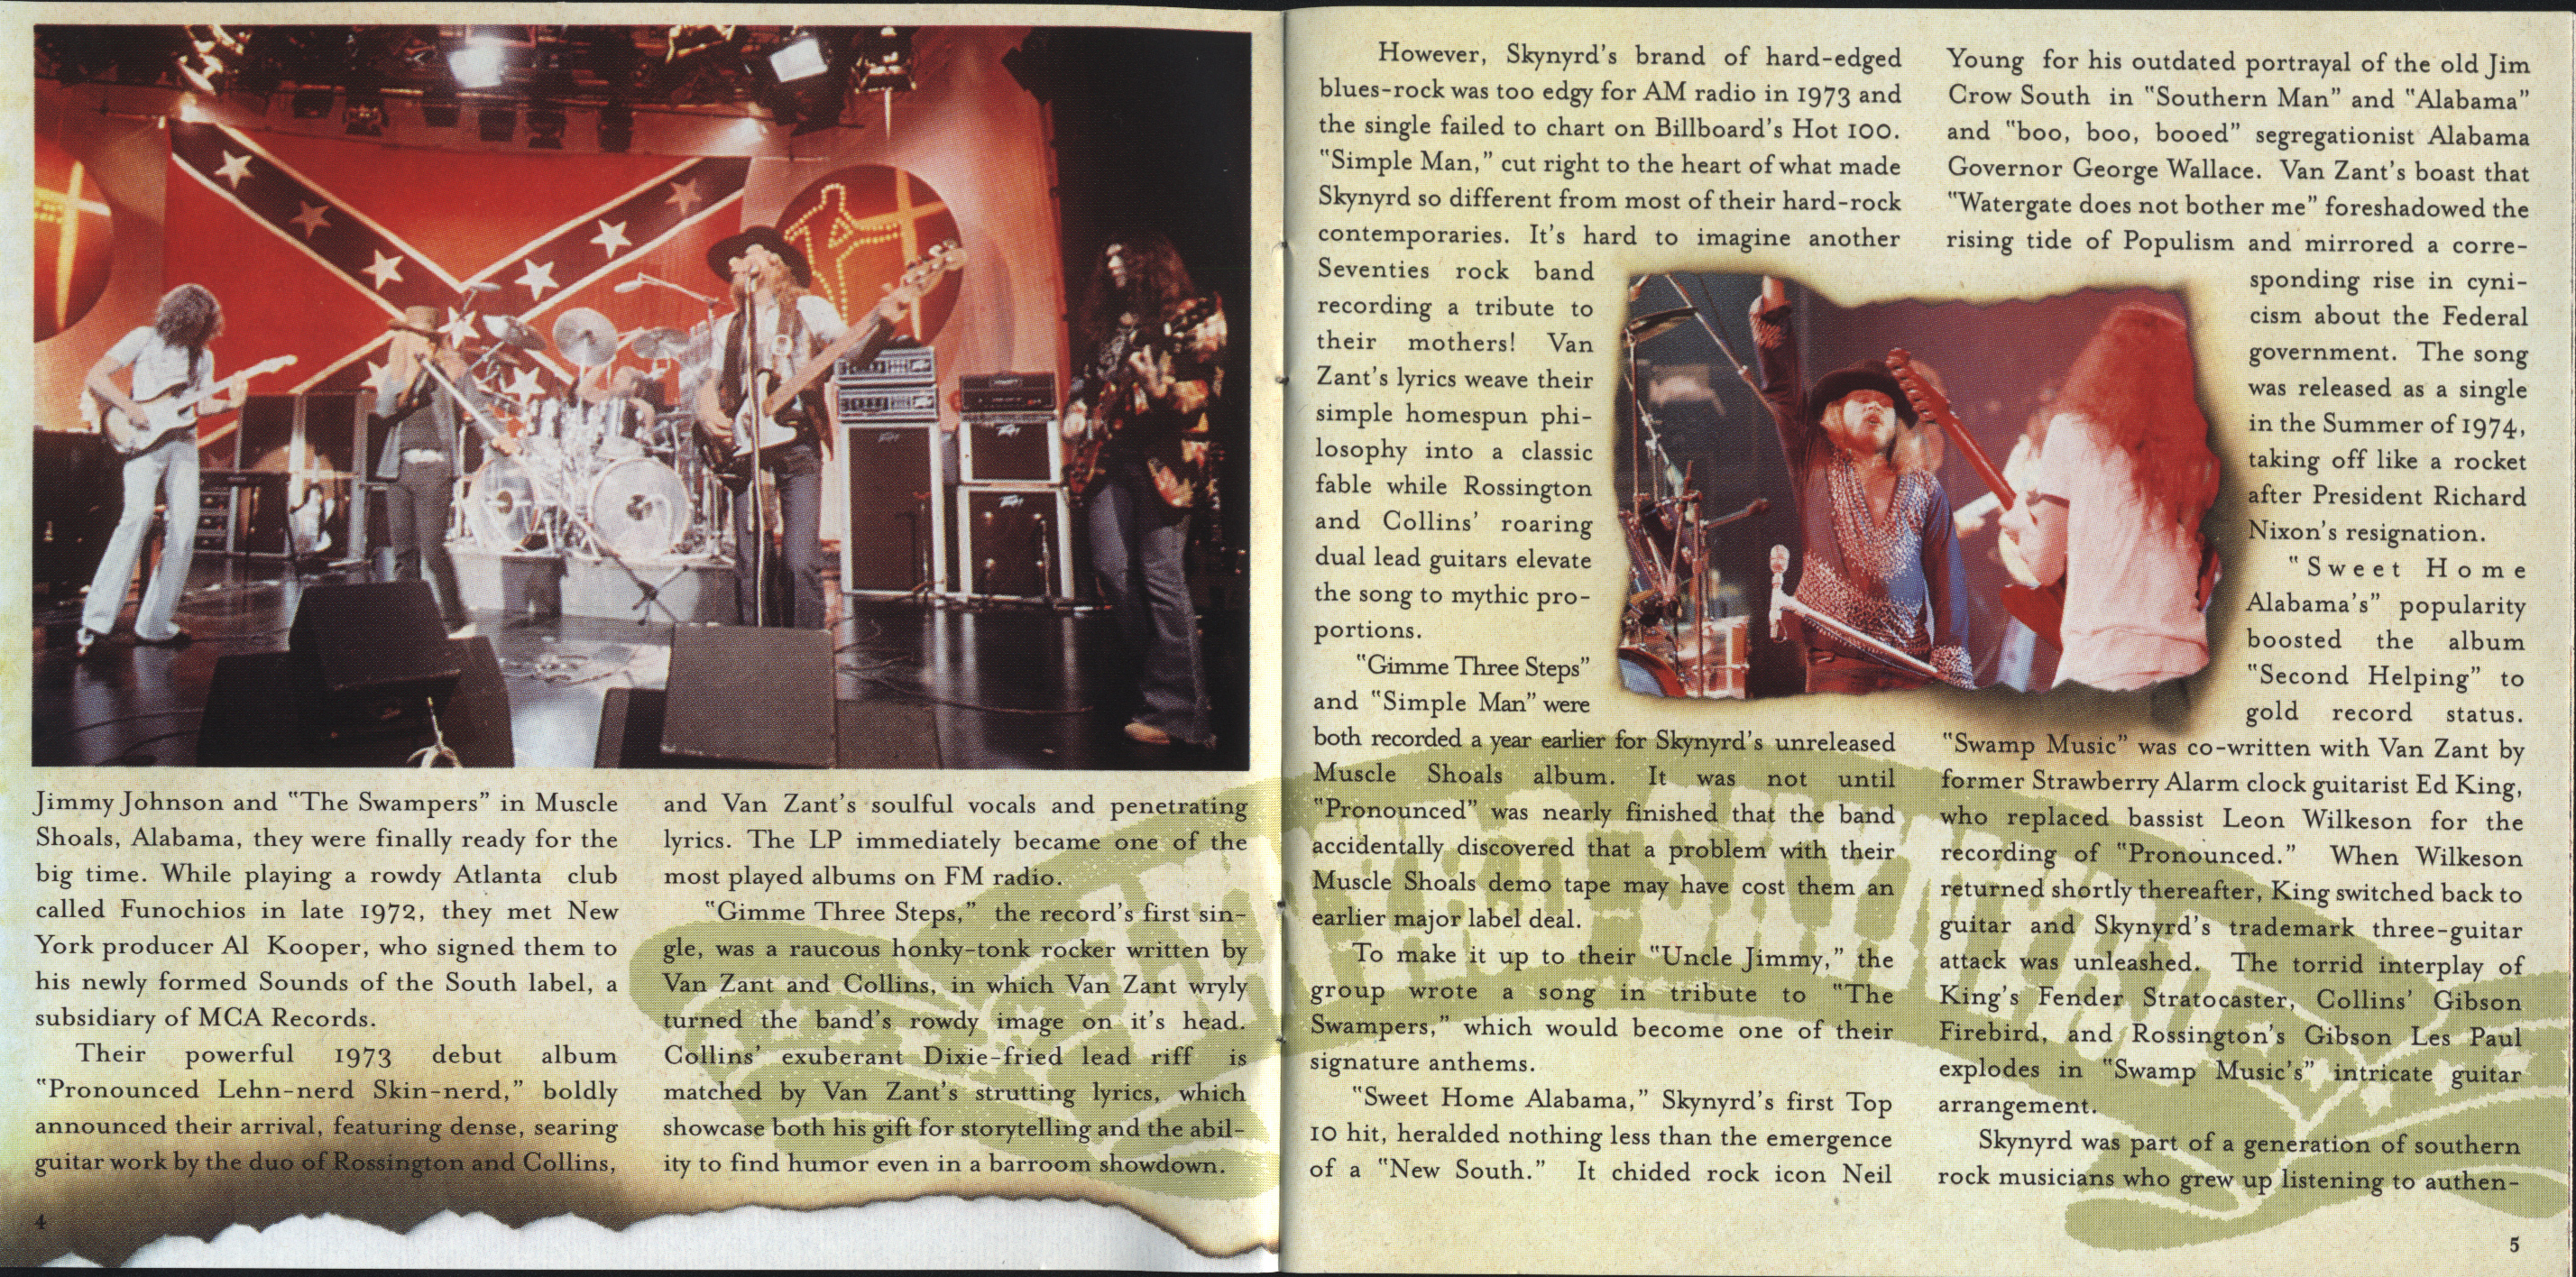 Jimmy Johnson and "The Swampers" in Muscle
Shoals, Alabama, they were finally ready for the
big time. While playing a rowdy Atlanta club
called Funochios in late 1972, they met New
York producer Al Kooper, who signed them to
his newly formed Sounds of the South label, a
subsidiary of MCA Records.
Their powerful 1973 debut album
"Pronounced Lehn-nerd Skin-nerd," boldly
announced their arrival, featuring dense, searing
guitar work by the duo of Rossington and Collins,
4
and Van Zant's soulful vocals and penetrating
lyrics. The LP immediately became one of the
most played albums on FM radio.
"Gimme Three Steps," the record's first sin-
gle, was a raucous honky-tonk rocker written by
Van Zant and Collins, in which Van Zant wryly
turned the band's rowdy image on it's head.
Collins' exuberant Dixie-fried lead riff is
matched by Van Zant's strutting lyrics, which
showcase both his gift for storytelling and the abil-
ity to find humor even in a barroom showdown.
However, Skynyrd's brand of hard-edged
blues-rock was too edgy for AM radio in 1973 and
the single failed to chart on Billboard's Hot 100.
"Simple Man," cut right to the heart of what made
Skynyrd so different from most of their hard-rock
contemporaries. It's hard to imagine another
Seventies rock band
recording a tribute to
their mothers! Van
Zant's lyrics weave their
simple homespun phi-
losophy into a classic
fable while Rossington
and Collins' roaring
dual lead guitars elevate
the song to mythic pro-
portions.
"Gimme Three Steps"
and "Simple Man" were
both recorded a year earlier for Skynyrd's unreleased
Muscle Shoals album. It was not until
"Pronounced" was nearly finished that the band
accidentally discovered that a problem with their
Muscle Shoals demo tape may have cost them an
earlier major label deal.
To make it up to their "Uncle Jimmy," the
group wrote a song in tribute to "The
Swampers," which would become one of their
signature anthems.
"Sweet Home Alabama," Skynyrd's first Top
10 hit, heralded nothing less than the emergence
of a "New South." It chided rock icon Neil
Young for his outdated portrayal of the old Jim
Crow South in "Southern Man" and "Alabama"
and "boo, boo, booed" segregationist Alabama
Governor George Wallace. Van Zant's boast that
"Watergate does not bother me" foreshadowed the
rising tide of Populism and mirrored a corre-
sponding rise in cyni-
cism about the Federal
government. The song
was released as a single
in the Summer of 1974,
taking off like a rocket
after President Richard
Nixon's resignation.
"Sweet Home
Alabama's" popularity
boosted the album
"Second Helping" to
gold record status.
"Swamp Music" was co-written with Van Zant by
former Strawberry Alarm clock guitarist Ed King,
who replaced bassist Leon Wilkeson for the
recording of "Pronounced." When Wilkeson
returned shortly thereafter, King switched back to
guitar and Skynyrd's trademark three-guitar
attack was unleashed. The torrid interplay of
King's Fender Stratocaster, Collins' Gibson
Firebird, and Rossington's Gibson Les Paul
explodes in "Swamp Music's" intricate guitar
arrangement.
Skynyrd was part of a generation of southern
rock musicians who grew up listening to authen-
5